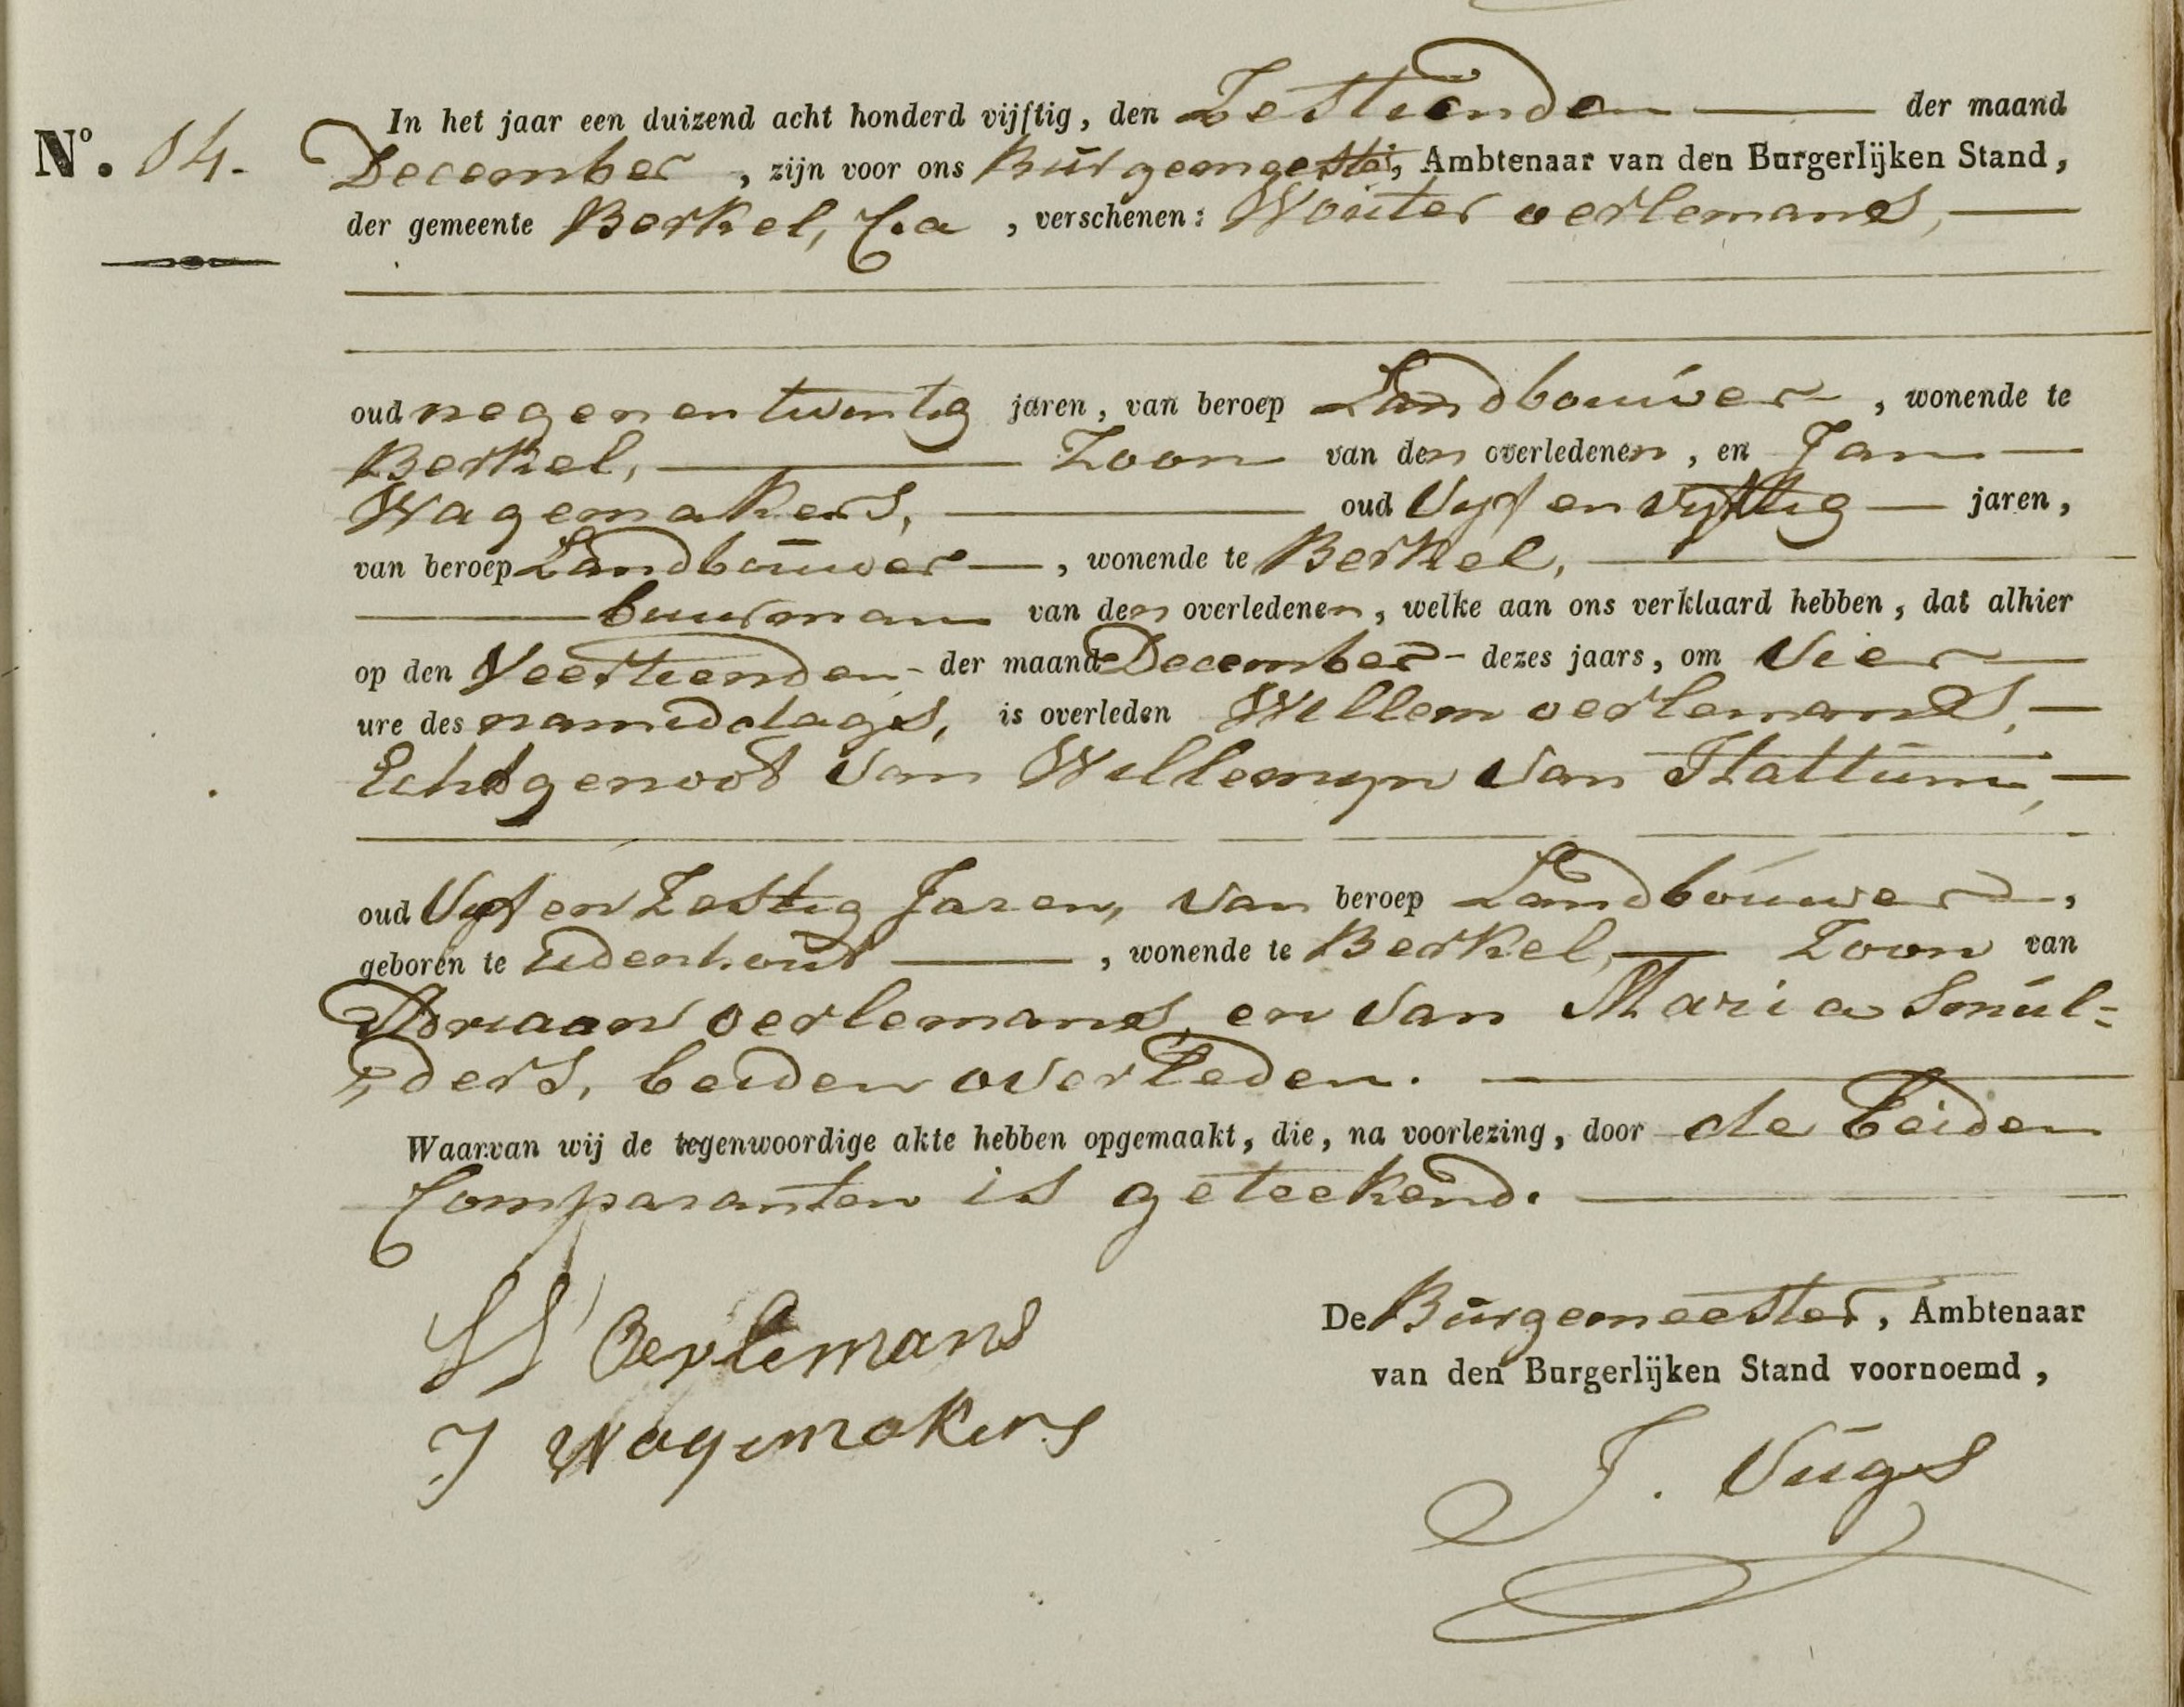 In het jaar een duizend acht honderd vijftig, den Zestienden der maand
Nº. 54. December, zijn voor ons Burgemeester, Ambtenaar van den Burgerlijken Stand,
der gemeente Berkel, Ca, verschenen: Wouter oerlemans,
oud negen en twintig jaren, van beroep Landbouwer, wonende te
Berkel, Zoon van den overledenen, en Jan
Wagemakers, oud Vyf en vyftig jaren,
van beroep Landbouwer, wonende te Berkel,
buurman van den overledenen, welke aan ons verklaard hebben, dat alhier
op den Veertienden der maand December dezes jaars, om Vier
ure des namiddags, is overleden Willem oerlemans,
Echtgenoot van Willemyn van Hattum,
oud Vyf en Zestig Jaren, van beroep Landbouwer,
geboren te Udenhout, wonende te Berkel, Zoon van
Adriaan oerlemans, en van Maria Smul=
=ders, beiden overleden.
Waarvan wij de tegenwoordige akte hebben opgemaakt, die, na voorlezing, door de beiden
Comparanten is geteekend.
W Oerlemans
De Burgemeester, Ambtenaar
van den Burgerlijken Stand voornoemd,
J Wagemakers
J. Vugs